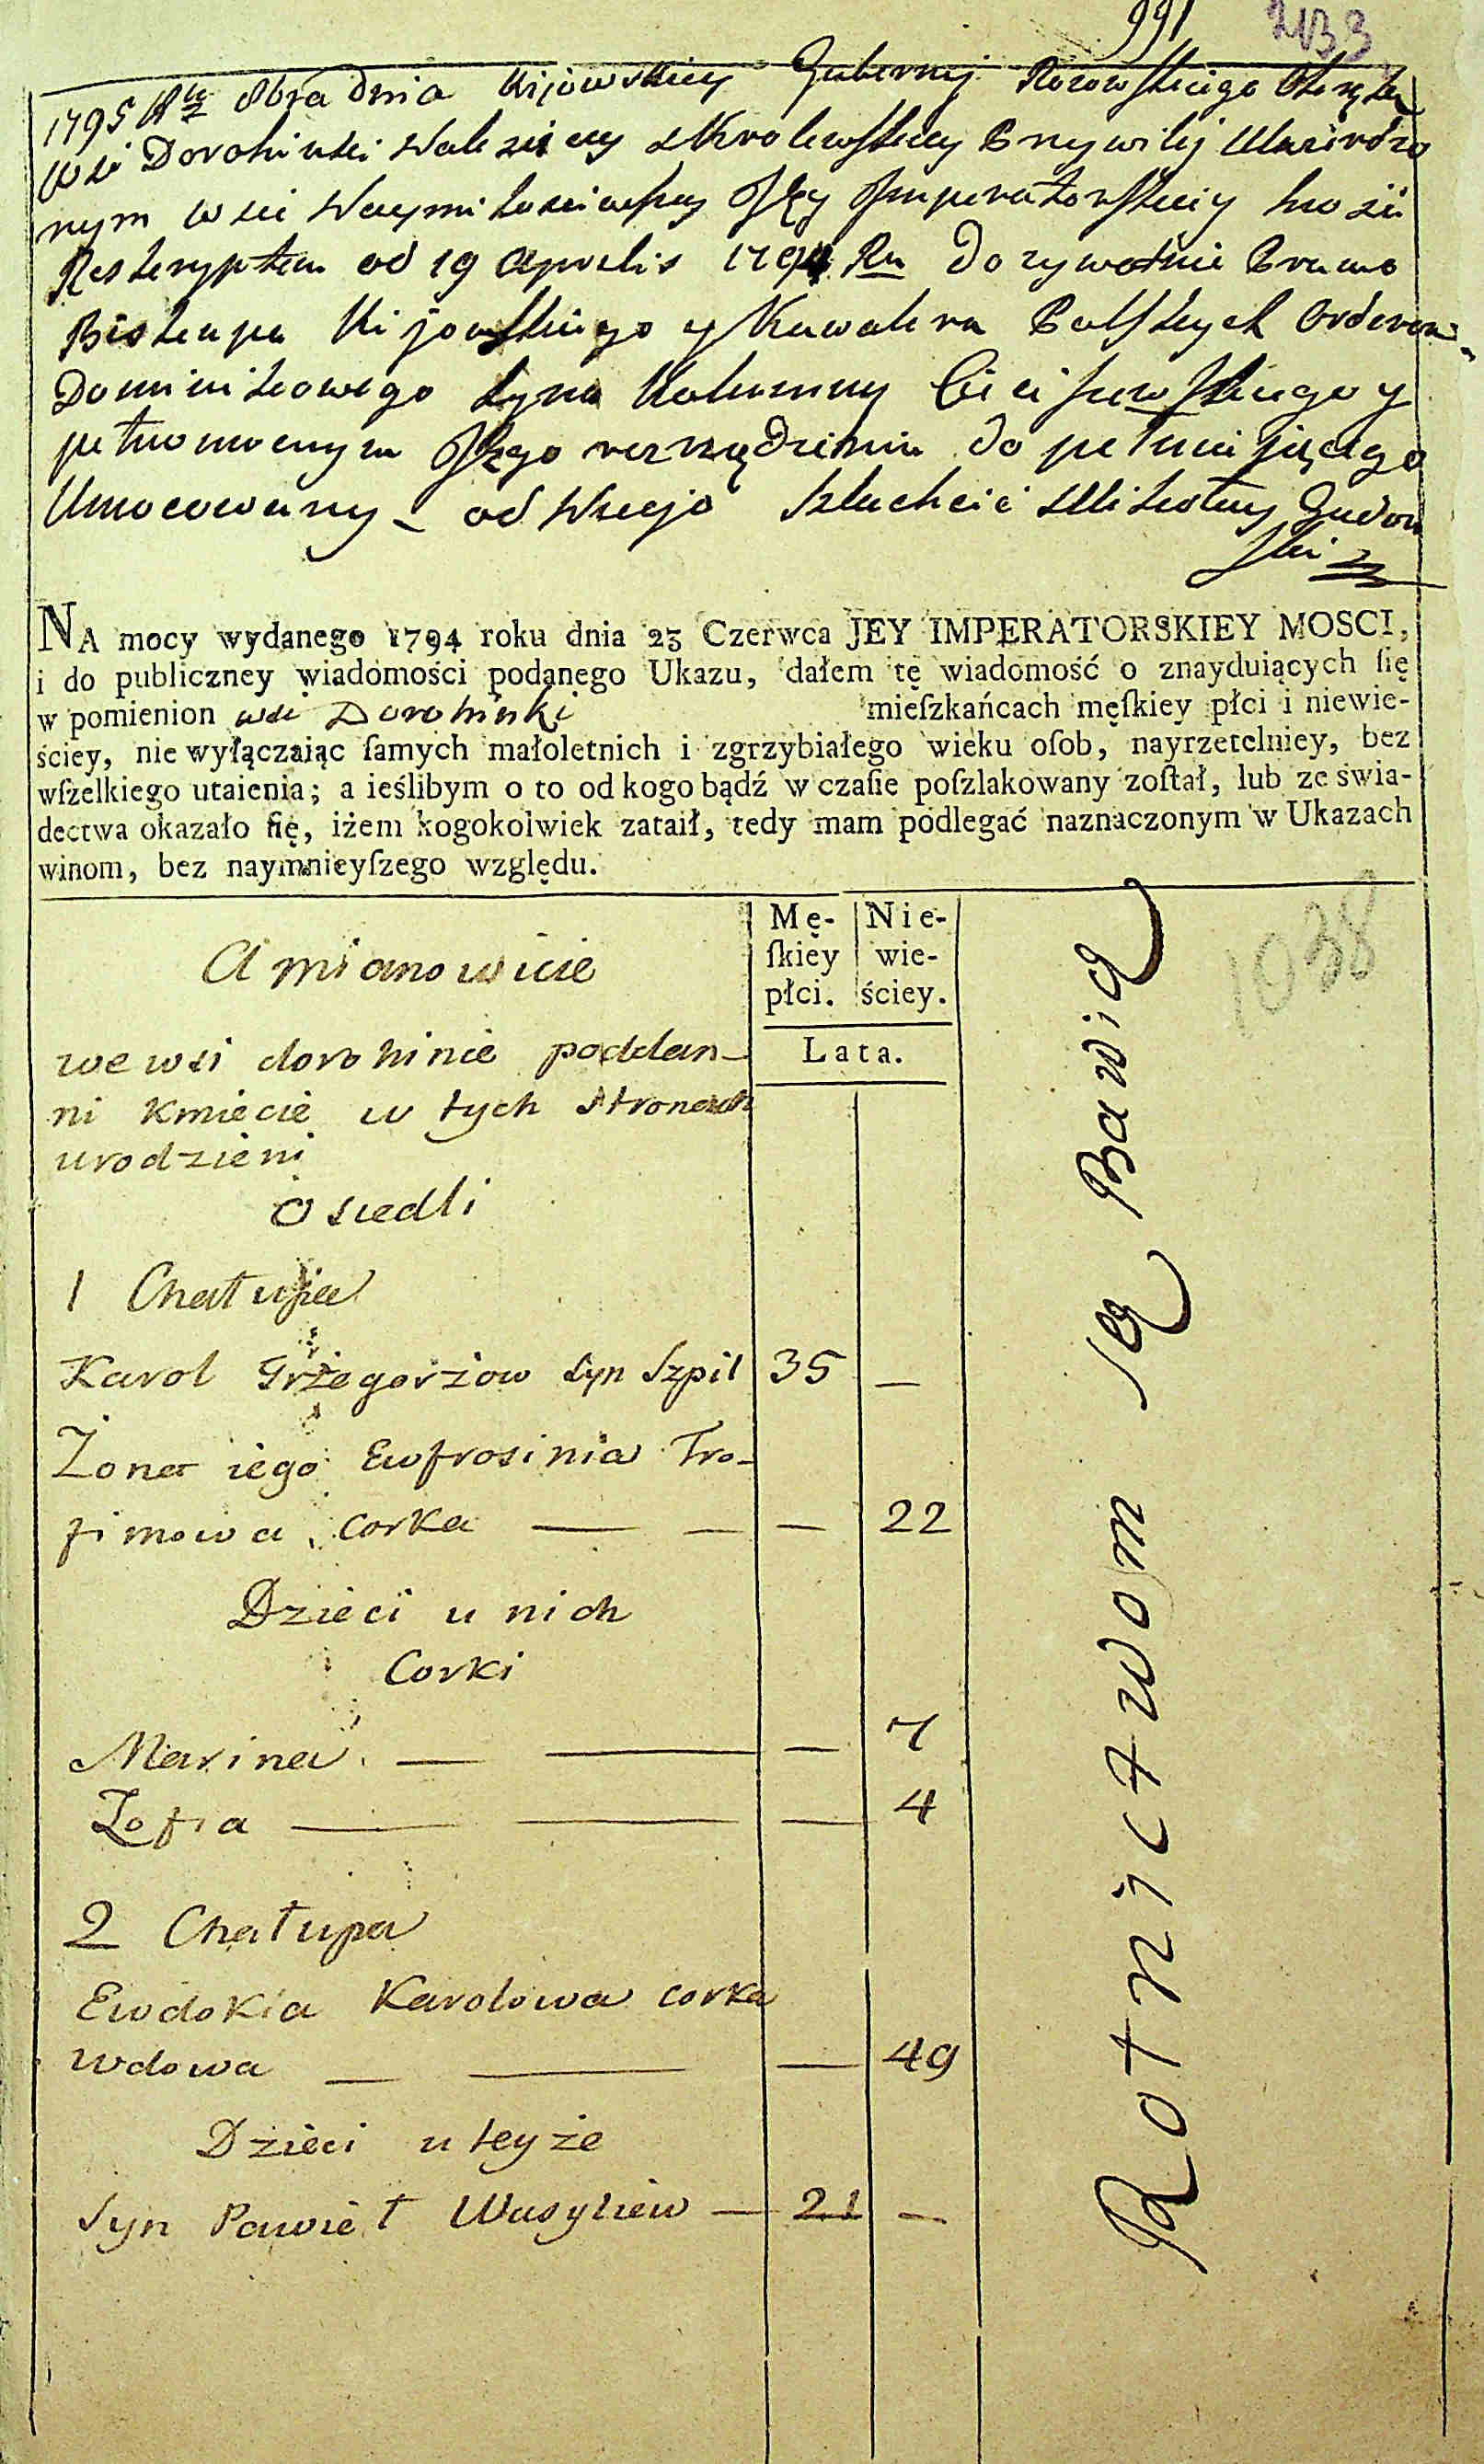 991 2133
1795 8bra Dnia Kijowskiey Gubernij
Wsi Dorohinki z Krolewskiey Przywilej
nym wsi Naymiłościwszey Jey Imperatorskiey
Reskryptem od 19 Aprilis 1794 Ru Dożywotnie Prawo
Biskupa Kijowskiego y Kawalera Polskych Orderow
Dominikowego Syna Kolumny Cieciszewskiego y
pełnomocnym Jego do pełnieijącego
Umocowany od Niego Szlachcic Mikołay
ski
NA mocy wydanego 1794 roku dnia 23 Czerwca JEY IMPERATORSKIEY MOSCI,
i do publiczney wiadomości podanego Ukazu, dałem tę wiadomość o znayduiących ſię
w pomienion wsi Dorohinki mieſzkańcach męſkiey płci i niewie-
ściey, nie wyłączaiąc ſamych małoletnich i zgrzybiałego wieku oſob, nayrzetelniey, bez
wſzelkiego utaienia; a ieślibym o to od kogo bądź w czaſie poſzlakowany zoſtał, lub ze świa-
dectwa okazało ſię, iżem kogokolwiek zataił, tedy mam podlegać naznaczonym w Ukazach
winom, bez naymnieyſzego względu.
A mianowicie
Mę- Nie-
ſkiey wie-
płci. ściey.
Lata.
we wsi dorohince poddan-
ni Kmiecie w tych stronach
urodzieni
Osiedli
1 Chałupa
Karol Grzegorzow Syn Szpil 35 —
Żona iego Ewfrosinia Tro-
fimowa corka — — — 22
Dzieci u nich
Corki
Marina — — — 7
Zofia — — — 4
2 Chałupa
Ewdokia Karolowa corka
wdowa — — — 49
Dzieci u teyże
Syn Pawieł Wasyliew — 21 —
Rolnictwom są Bawią
1038